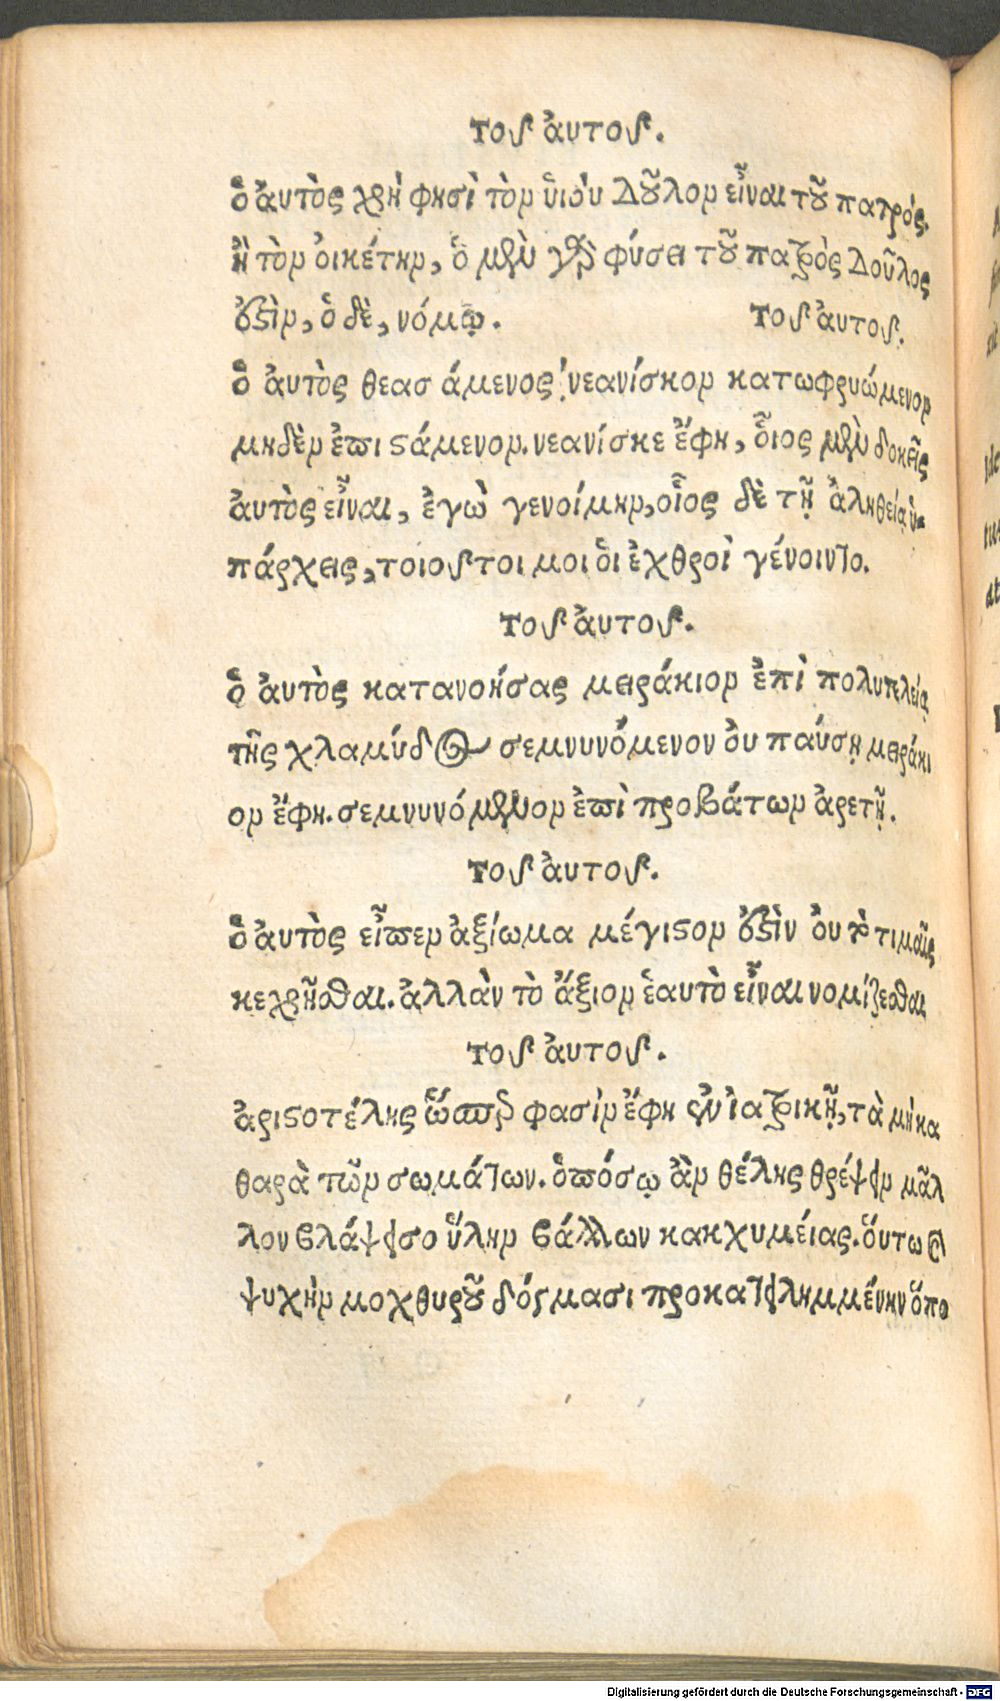 τοῦ ἀυτοῦ.
ὁ ἀυτὸς χρὴ φησὶ τὸν ὑιὸυ Δοῦλον εἶναι τοῦ πατρός.
ἢ τὸν ὀικέτην, ὁ μὲν γὰρ φύσει τοῦ πατρὸς Δοῦλος
ὀστὶν, ὁ δὲ, νόμῳ. τοῦ ἀυτοῦ.
ὁ ἀυτὸς θεασάμενος νεανίσκον κατωφρυώμενον
μηδὲν ἐπιστάμενον. νεανίσκε ἔφη, ὅιος μὲν δοκεῖς
ἀυτὸς εἶναι, ἐγὼ γενοίμην, οἷος δὲ τῇ ἀληθείᾳ ὑ-
πάρχεις, τοιοῦτοι μοι ὁι ἐχθροὶ γένοιντο.
τοῦ ἀυτοῦ.
ὁ ἀυτὸς κατανοήσας μειράκιον ἐπὶ πολυτελείᾳ
τῆς χλαμύδος σεμνυνόμενον ὀυ παύσῃ μειράκι
ον ἔφη. σεμνυνόμενον ἐπὶ προβάτων ἀρετῇ.
τοῦ ἀυτοῦ.
ὁ ἀυτὸς εἶπεν ἀξίωμα μέγιστον ὀστὶν ὀυ τὸ τιμαῖς
κεχρῆσθαι. ἀλλὰν τὸ ἄξιον ἑαυτὸ εἶναι νομίζεσθαι
τοῦ ἀυτοῦ.
ἀριστοτέλης ὥσπερ φασὶν ἔφη ἐν ἰατρικῇ, τὰ μὴ κα
θαρὰ τῶν σωμάτων. ὁπόσῳ ἂν θέλης θρέψειν μᾶλ
λον βλάψεισο ὕλην βάλλων κακχυμείας. ὅυτως
ψυχὴν μοχθυροῦ δόγμασι προκατειλημμένην ὅπο
Digitalisierung gefördert durch die Deutsche Forschungsgemeinschaft - DFG